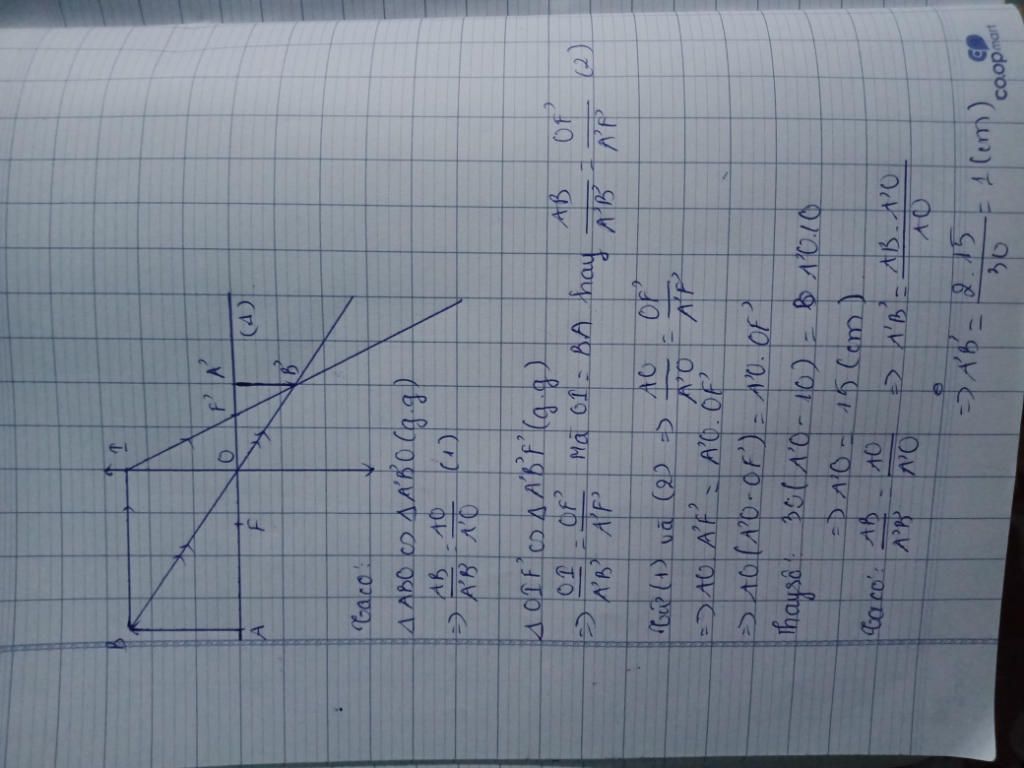 B
I
A
F
O
F'
A'
(Δ)
B'
Ta có:
Δ ABO ∽ Δ A'B'O (g.g)
=> AB/A'B' = AO/A'O (1)
Δ OIF' ∽ Δ A'B'F' (g.g)
=> OI/A'B' = OF'/A'F' Mà OI = BA hay AB/A'B' = OF'/A'F' (2)
Từ (1) và (2) => AO/A'O = OF'/A'F'
=> AO A'F' = A'O.OF'
=> AO(A'O-OF') = A'O.OF'
Thay số: 30(A'O-10) = A'O.10
=> A'O = 15 (cm)
Ta có: AB/A'B' = AO/A'O => A'B' = AB.A'O/AO
=> A'B' = 2.15/30 = 1 (cm)
co.opmart